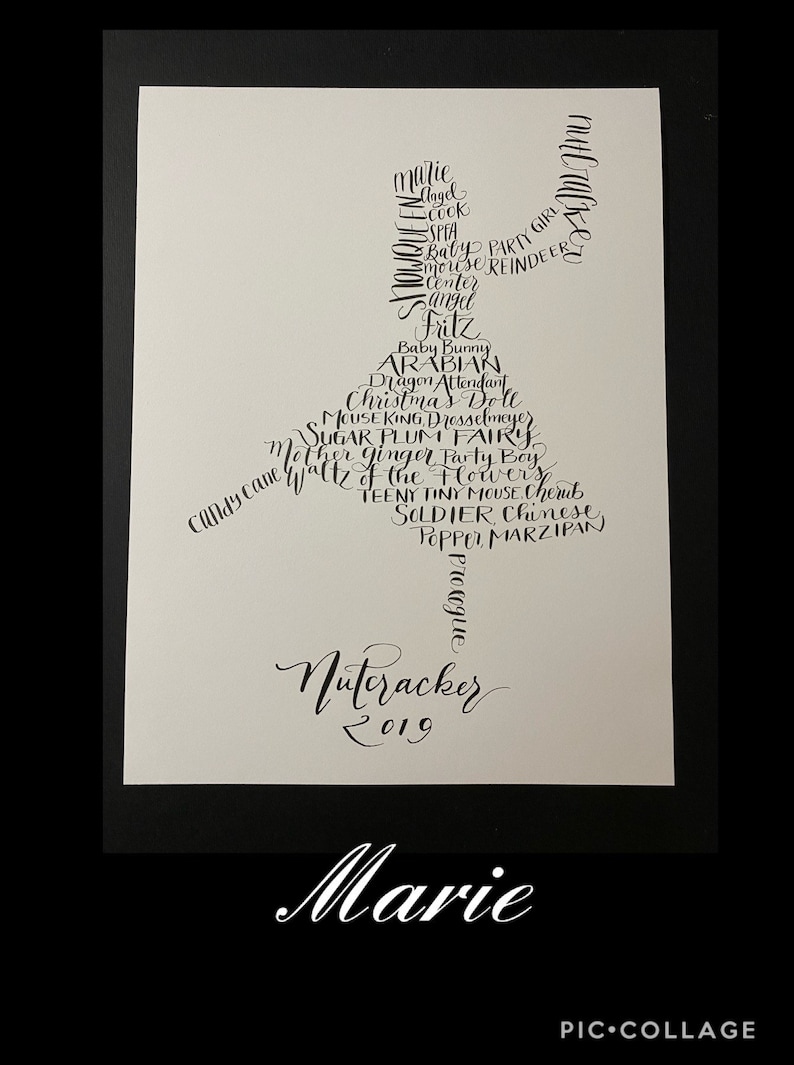 nutcracker
marie
SNOWQUEEN
Angel
COOK
SPFA
Baby
mouse
PARTY GIRL
REINDEER
Center
angel
Fritz
Baby Bunny
ARABIAN
Dragon Attendant
Christmas Doll
MOUSE KING, Drosselmeyer
SUGAR PLUM FAIRY
Mother ginger Party Boy
CANDY CANE
Waltz of the Flowers
TEENY TINY MOUSE, Cherub
SOLDIER, Chinese
Popper, MARZIPAN
Prologue
Nutcracker
2019
Marie
PIC•COLLAGE